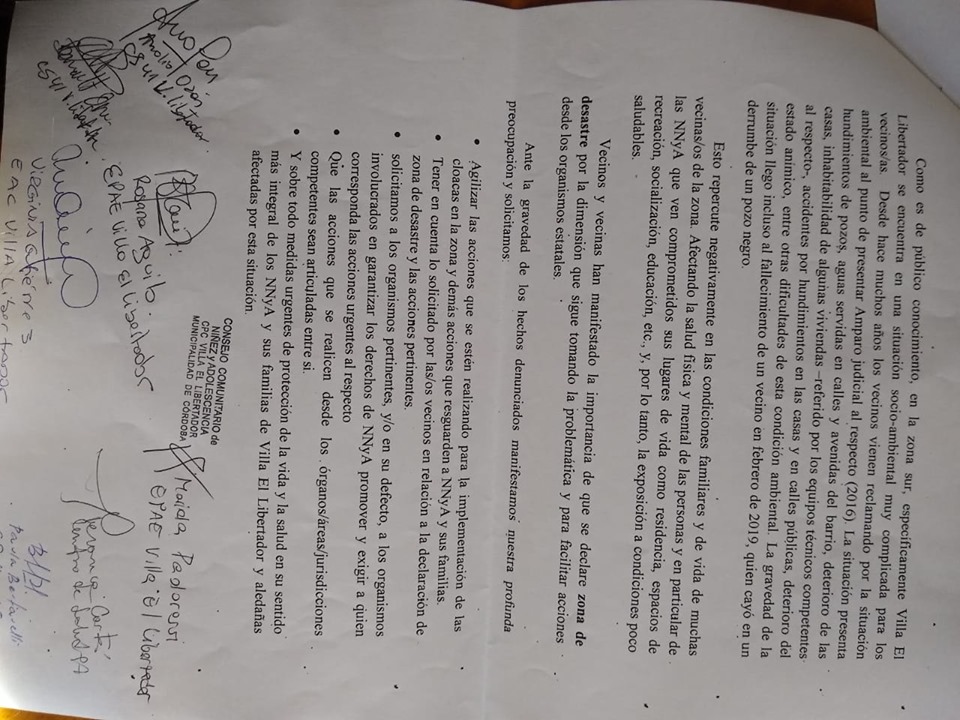 Como es de público conocimiento, en la zona sur, específicamente Villa El
Libertador se encuentra en una situación socio-ambiental muy complicada para los
vecinos/as. Desde hace muchos años los vecinos vienen reclamando por la situación
ambiental al punto de presentar Amparo judicial al respecto (2016). La situación presenta
hundimientos de pozos, aguas servidas en calles y avenidas del barrio, deterioro de las
casas, inhabitabilidad de algunas viviendas –referido por los equipos técnicos competentes
al respecto-, accidentes por hundimientos en las casas y en calles públicas, deterioro del
estado anímico, entre otras dificultades de esta condición ambiental. La gravedad de la
situación llego incluso al fallecimiento de un vecino en febrero de 2019, quien cayó en un
derrumbe de un pozo negro.
Esto repercute negativamente en las condiciones familiares y de vida de muchas
vecinas/os de la zona. Afectando la salud física y mental de las personas y en particular de
las NNyA que ven comprometidos sus lugares de vida como residencia, espacios de
recreación, socialización, educación, etc., y, por lo tanto, la exposición a condiciones poco
saludables.
Vecinos y vecinas han manifestado la importancia de que se declare zona de
desastre por la dimensión que sigue tomando la problemática y para facilitar acciones
desde los organismos estatales.
Ante la gravedad de los hechos denunciados manifestamos nuestra profunda
preocupación y solicitamos:
• Agilizar las acciones que se estén realizando para la implementación de las
cloacas en la zona y demás acciones que resguarden a NNyA y sus familias.
• Tener en cuenta lo solicitado por las/os vecinos en relación a la declaración de
zona de desastre y las acciones pertinentes.
• solicitamos a los organismos pertinentes, y/o en su defecto, a los organismos
involucrados en garantizar los derechos de NNyA promover y exigir a quien
corresponda las acciones urgentes al respecto
• Que las acciones que se realicen desde los órganos/áreas/jurisdicciones
competentes sean articuladas entre si.
• Y sobre todo medidas urgentes de protección de la vida y la salud en su sentido
más integral de los NNyA y sus familias de Villa El Libertador y aledañas
afectadas por esta situación.
CONSEJO COMUNITARIO de
NIÑEZ Y ADOLESCENCIA
CPC VILLA EL LIBERTADOR
MUNICIPALIDAD DE CÓRDOBA
CS 41 V. Libertador
Rosana
EPAE Villa El Libertador
Mariela
EPAE Villa El Libertador
Centro de Salud
EAC VILLA Libertador